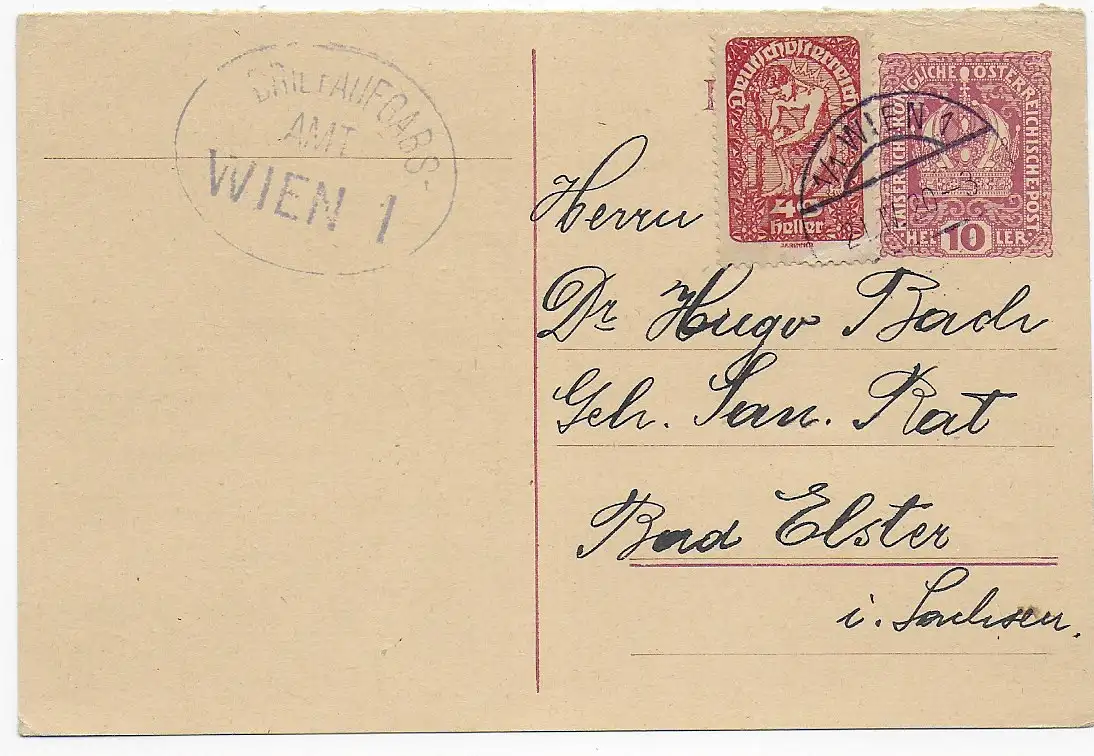 BRIEFAUFGABS-
AMT
WIEN 1
Deutschösterreich
40
heller
KAISERLICHE KÖNIGLICHE ÖSTERREICHISCHE POST
HEL 10 LER
1/1 WIEN 1
Herrn
Dr Hugo Bach
Geh. San. Rat
Bad Elster
i. Sachsen.